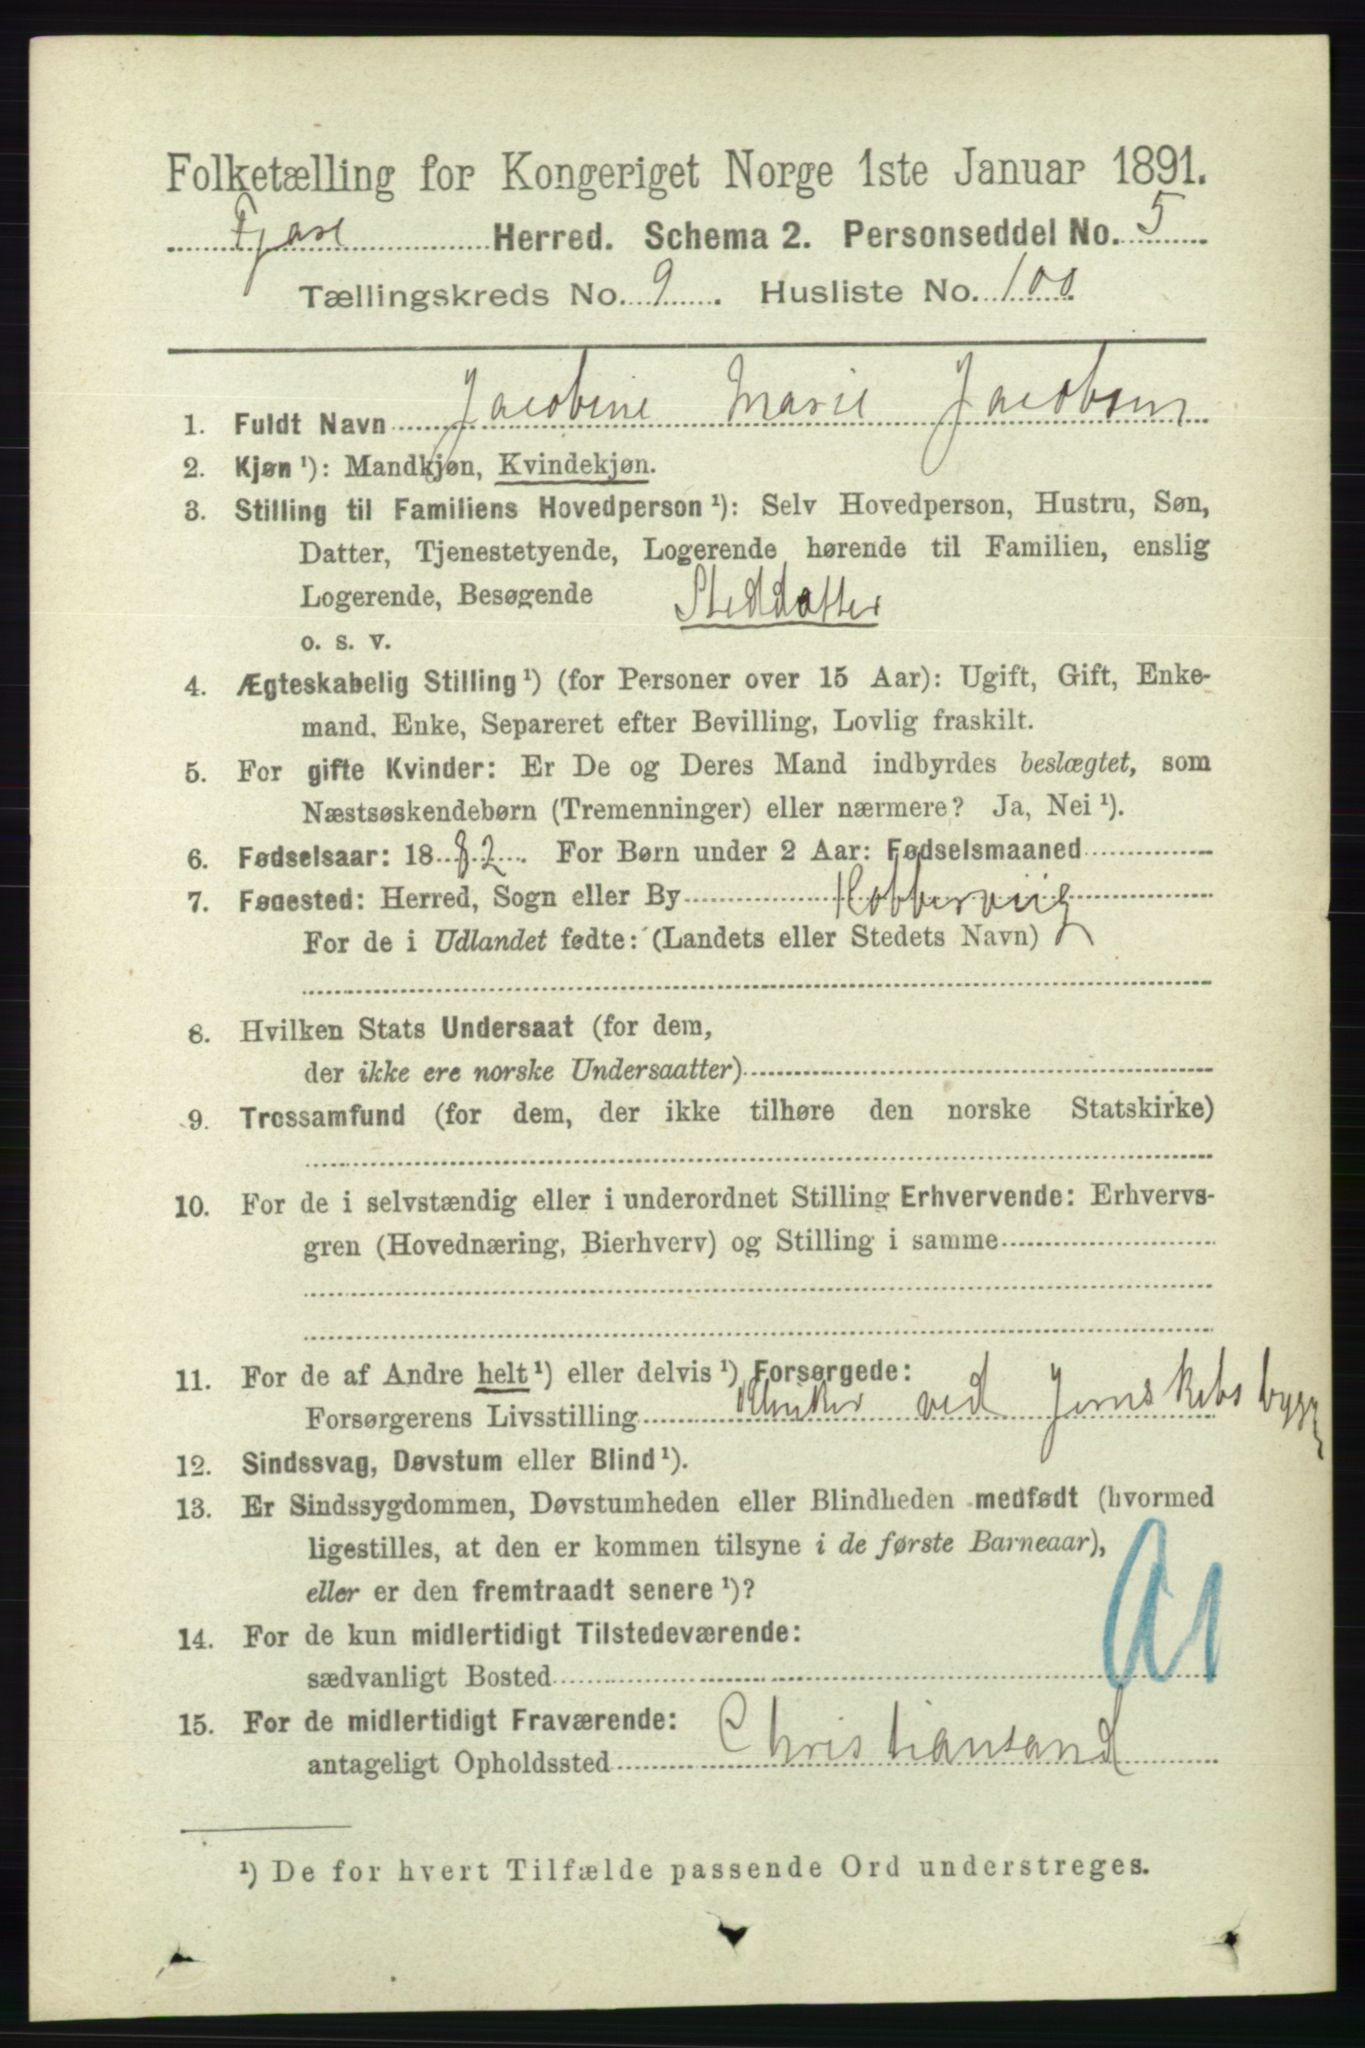 Folketælling for Kongeriget Norge 1ste Januar 1891.
Fjære Herred. Schema 2. Personseddel No. 5
Tællingskreds No. 9. Husliste No. 100
1. Fuldt Navn Jacobine Marie Jacobsen
2. Kjøn ¹): Mandkjøn, Kvindekjøn.
3. Stilling til Familiens Hovedperson ¹): Selv Hovedperson, Hustru, Søn,
Datter, Tjenestetyende, Logerende hørende til Familien, enslig
Logerende, Besøgende Steddatter
o. s. v.
4. Ægteskabelig Stilling ¹) (for Personer over 15 Aar): Ugift, Gift, Enke-
mand, Enke, Separeret efter Bevilling, Lovlig fraskilt.
5. For gifte Kvinder: Er De og Deres Mand indbyrdes beslægtet, som
Næstsøskendebørn (Tremenninger) eller nærmere? Ja, Nei ¹).
6. Fødselsaar: 1882. For Børn under 2 Aar: Fødselsmaaned
7. Fødested: Herred, Sogn eller By Kobberviig
For de i Udlandet fødte: (Landets eller Stedets Navn)
8. Hvilken Stats Undersaat (for dem,
der ikke ere norske Undersaatter)
9. Trossamfund (for dem, der ikke tilhøre den norske Statskirke)
10. For de i selvstændig eller i underordnet Stilling Erhvervende: Erhvervs-
gren (Hovednæring, Bierhverv) og Stilling i samme
11. For de af Andre helt ¹) eller delvis ¹) Forsørgede:
Forsørgerens Livsstilling Klinker ved Jernskibsbygg
12. Sindssvag, Døvstum eller Blind ¹).
13. Er Sindssygdommen, Døvstumheden eller Blindheden medfødt (hvormed
ligestilles, at den er kommen tilsyne i de første Barneaar),
eller er den fremtraadt senere ¹)?
14. For de kun midlertidigt Tilstedeværende:
sædvanligt Bosted
15. For de midlertidigt Fraværende:
antageligt Opholdssted Christiansand
¹) De for hvert Tilfælde passende Ord understreges.